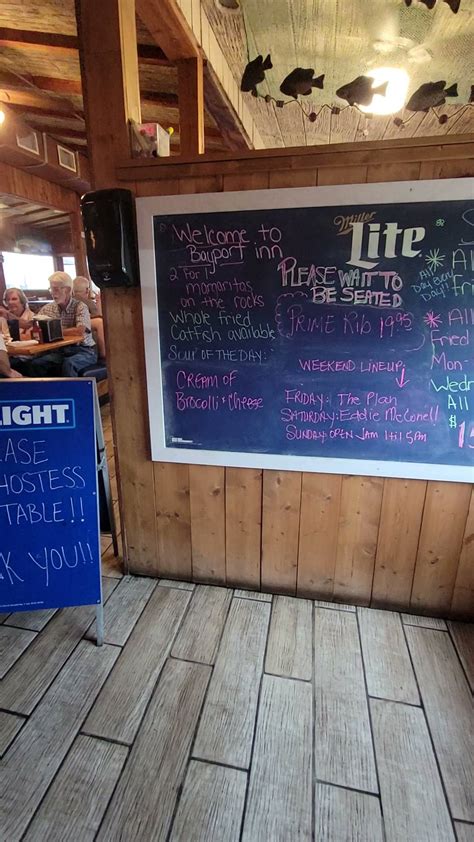 Welcome to
Bayport inn
2 For 1
margaritas
on the rocks
Whole Fried
Catfish available
Soup OF THE DAY:
CREAM OF
Brocolli & Cheese
Miller
Lite
PLEASE WAIT TO
BE SEATED
PRIME RIB 19.95
WEEKEND LINEUP
FRIDAY: The Plan
SATURDAY: Eddie
SUNDAY: OPEN JAM
All
Day
Fried
Mon
Wedn
All
$1
LIGHT
EASE
HOSTESS
TABLE!!
K YOU!!